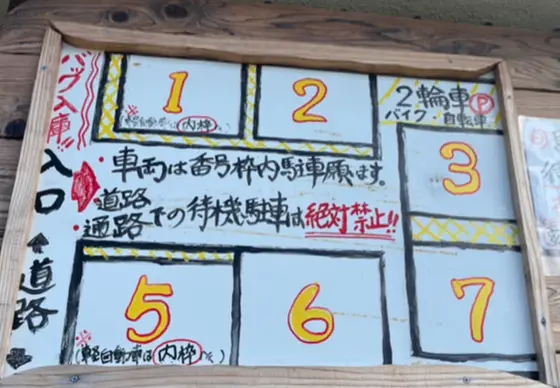 バック入庫!!
1
(※軽自動車は内枠へ)
2
2輪車 P
バイク・自転車
3
・車両は番号枠内駐車願います。
・道路
通路での待機駐車は絶対禁止!!
入口
↑道路
5
(※軽自動車は内枠へ)
6
7